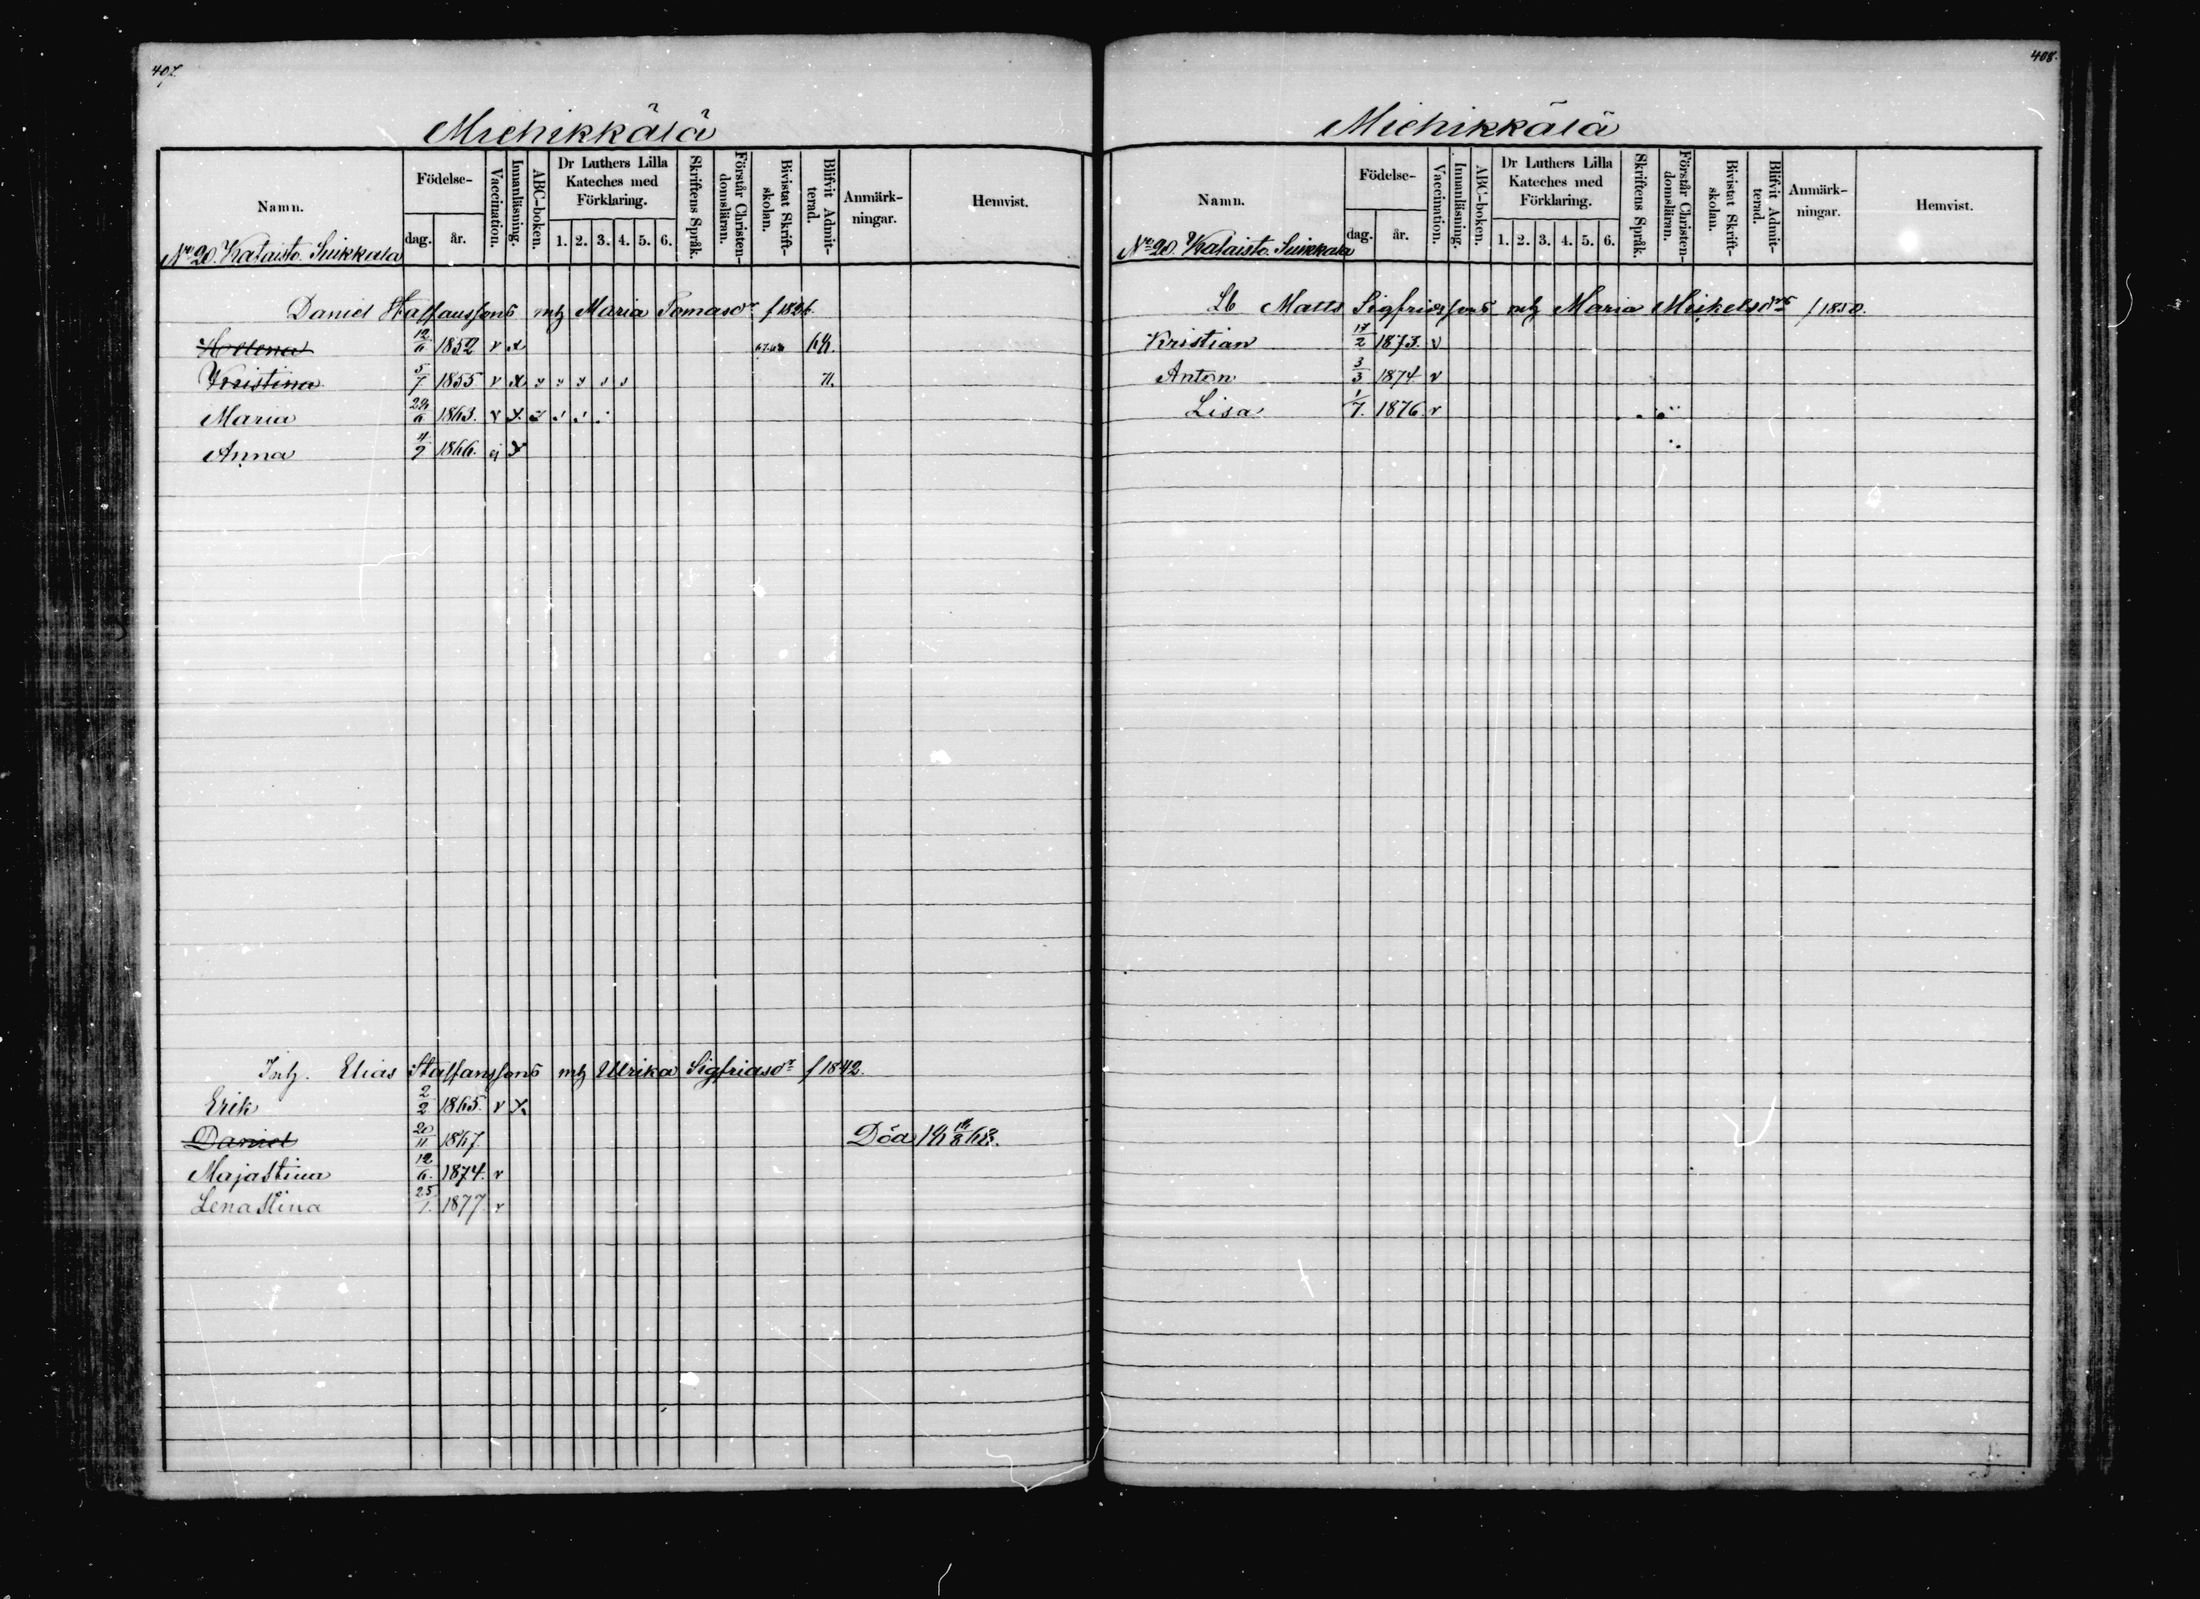 407.
Miehikkälä
Namn. Födelse- dag. år. Vaccination. Innanläsning. ABC-boken. Dr Luthers Lilla Kateches med Förklaring. 1. 2. 3. 4. 5. 6. Skriftens Språk. Förstår Christendomsläran. Bivistat Skriftskolan. Blifvit Admitterad. Anmärkningar. Hemvist.
No 20. Kalaisto. Suikkala
Daniel Staffanssons m hu Maria Tomasdr f 1826.
Helena 12/6 1852 v x 67.68 68.
Kristina 5/7 1855 v x 71.
Maria 22/6 1863. v x
Anna 4/9 1866. ej x
Inh. Elias Staffanssons Ulrika Sigfridsdr f 1842.
Erik 2/2 1865. v x
Daniel 20/11 1867. Död
Majastina 12/6. 1874. v
Lenastina 25/1. 1877. v
408.
Miehikkälä
Namn. Födelse- dag. år. Vaccination. Innanläsning. ABC-boken. Dr Luthers Lilla Kateches med Förklaring. 1. 2. 3. 4. 5. 6. Skriftens Språk. Förstår Christendomsläran. Bivistat Skriftskolan. Blifvit Admitterad. Anmärkningar. Hemvist.
No 20. Kalaisto. Suikkala
Matts Sigfridssons Maria Mickelsdr f 1850.
Kristian 17/2 1873. v
Anton 3/3 1874 v
Lisa 1/7. 1876. v